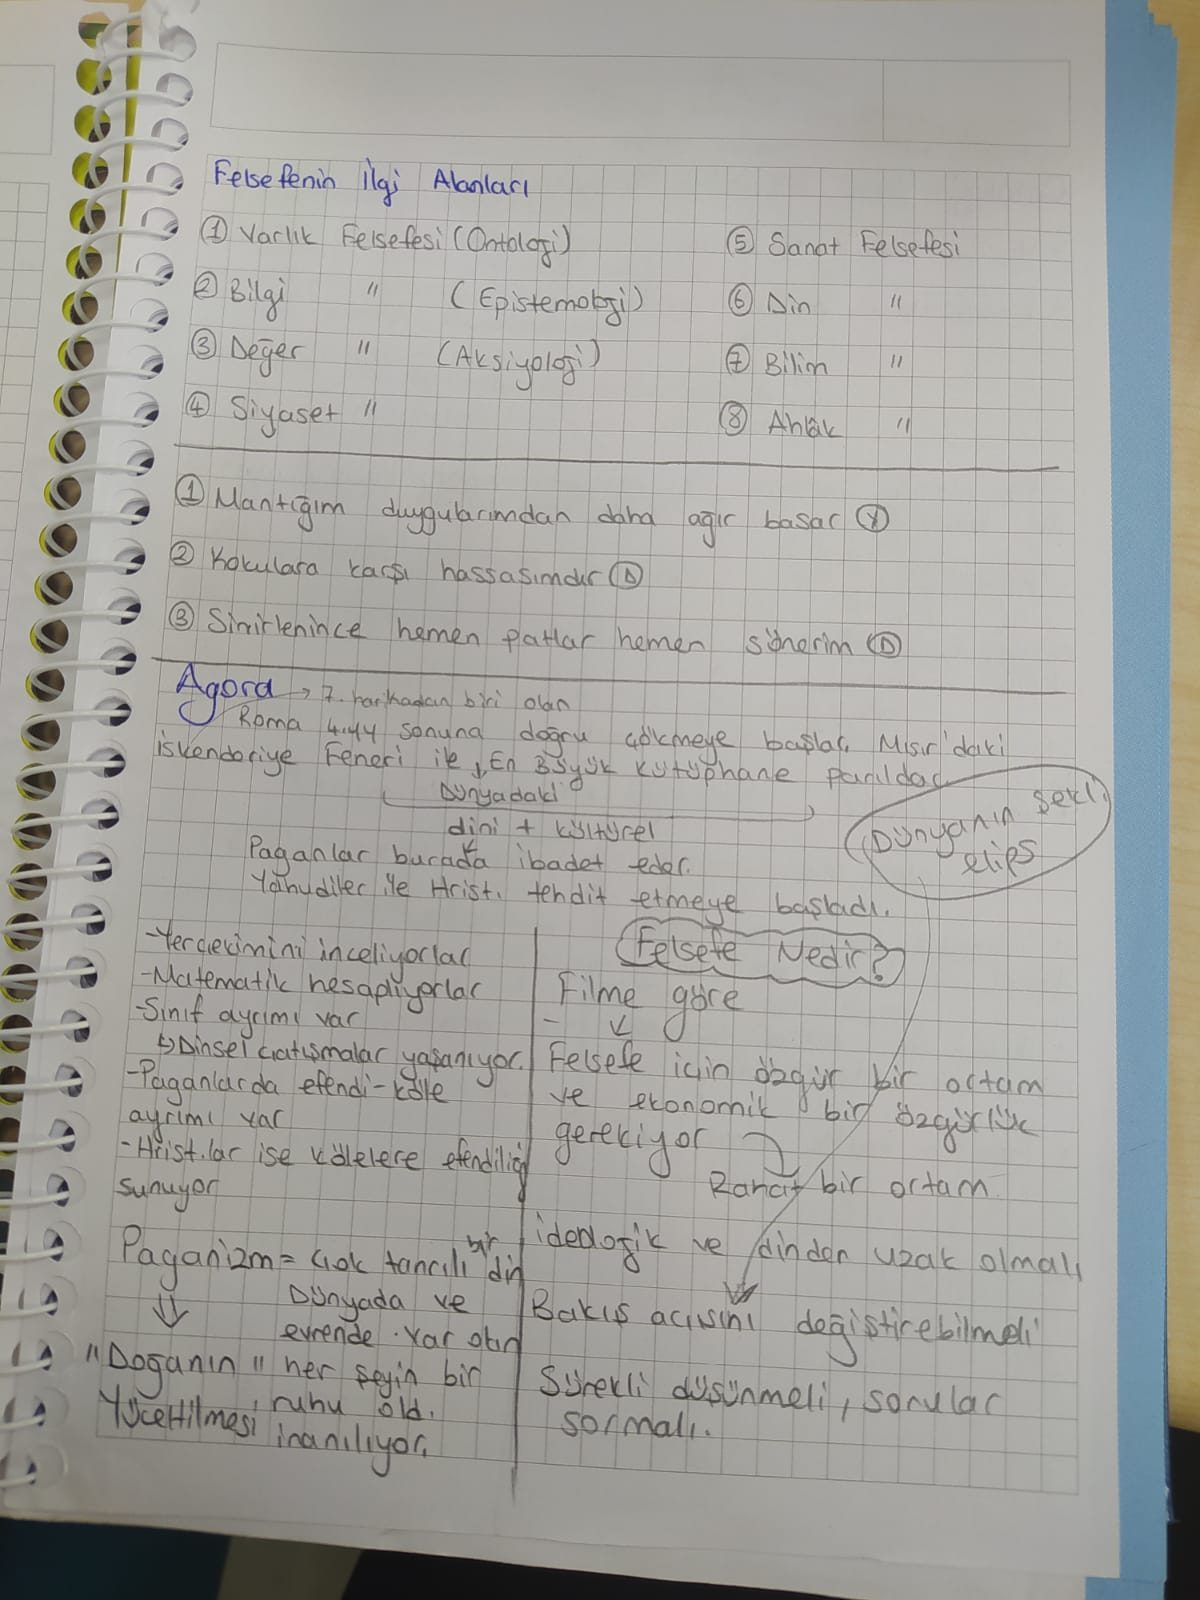 Felsefenin İlgi Alanları
① Varlık Felsefesi (Ontoloji)
② Bilgi " (Epistemoloji)
③ Değer " (Aksiyoloji)
④ Siyaset "
⑤ Sanat Felsefesi
⑥ Din "
⑦ Bilim "
⑧ Ahlâk "
① Mantığım duygularımdan daha ağır basar Ⓨ
② Kokulara karşı hassasımdır Ⓓ
③ Sinirlenince hemen patlar hemen sönerim Ⓓ
Agora → 7 harikadan biri olan
Roma 4.yy sonuna doğru çökmeye başlar. Mısır'daki
İskenderiye Feneri ile, En Büyük kütüphane parıldar
Dünyadaki
dini + kültürel
Paganlar burada ibadet eder.
Yahudiler ile Hrist. tehdit etmeye başladı.
Dünyanın şekli
elips
-Yerçekimini inceliyorlar
-Matematik hesaplıyorlar
-Sınıf ayrımı var
↳Dinsel çatışmalar yaşanıyor.
-Paganlarda efendi-köle
ayrımı var
-Hrist.lar ise kölelere efendiliği
sunuyor
Paganizm = çok tanrılı bir din
⇓ Dünyada ve
evrende var olan
"Doğanın" her şeyin bir
Yüceltilmesi, ruhu old.
inanılıyor.
Felsefe Nedir?
Filme göre
- ↓
Felsefe için özgür bir ortam
ve ekonomik bir özgürlük
gerekiyor
Rahat bir ortam
ideolojik ve dinden uzak olmalı
Bakış açısını değiştirebilmeli
Sürekli düşünmeli, sorular
sormalı.